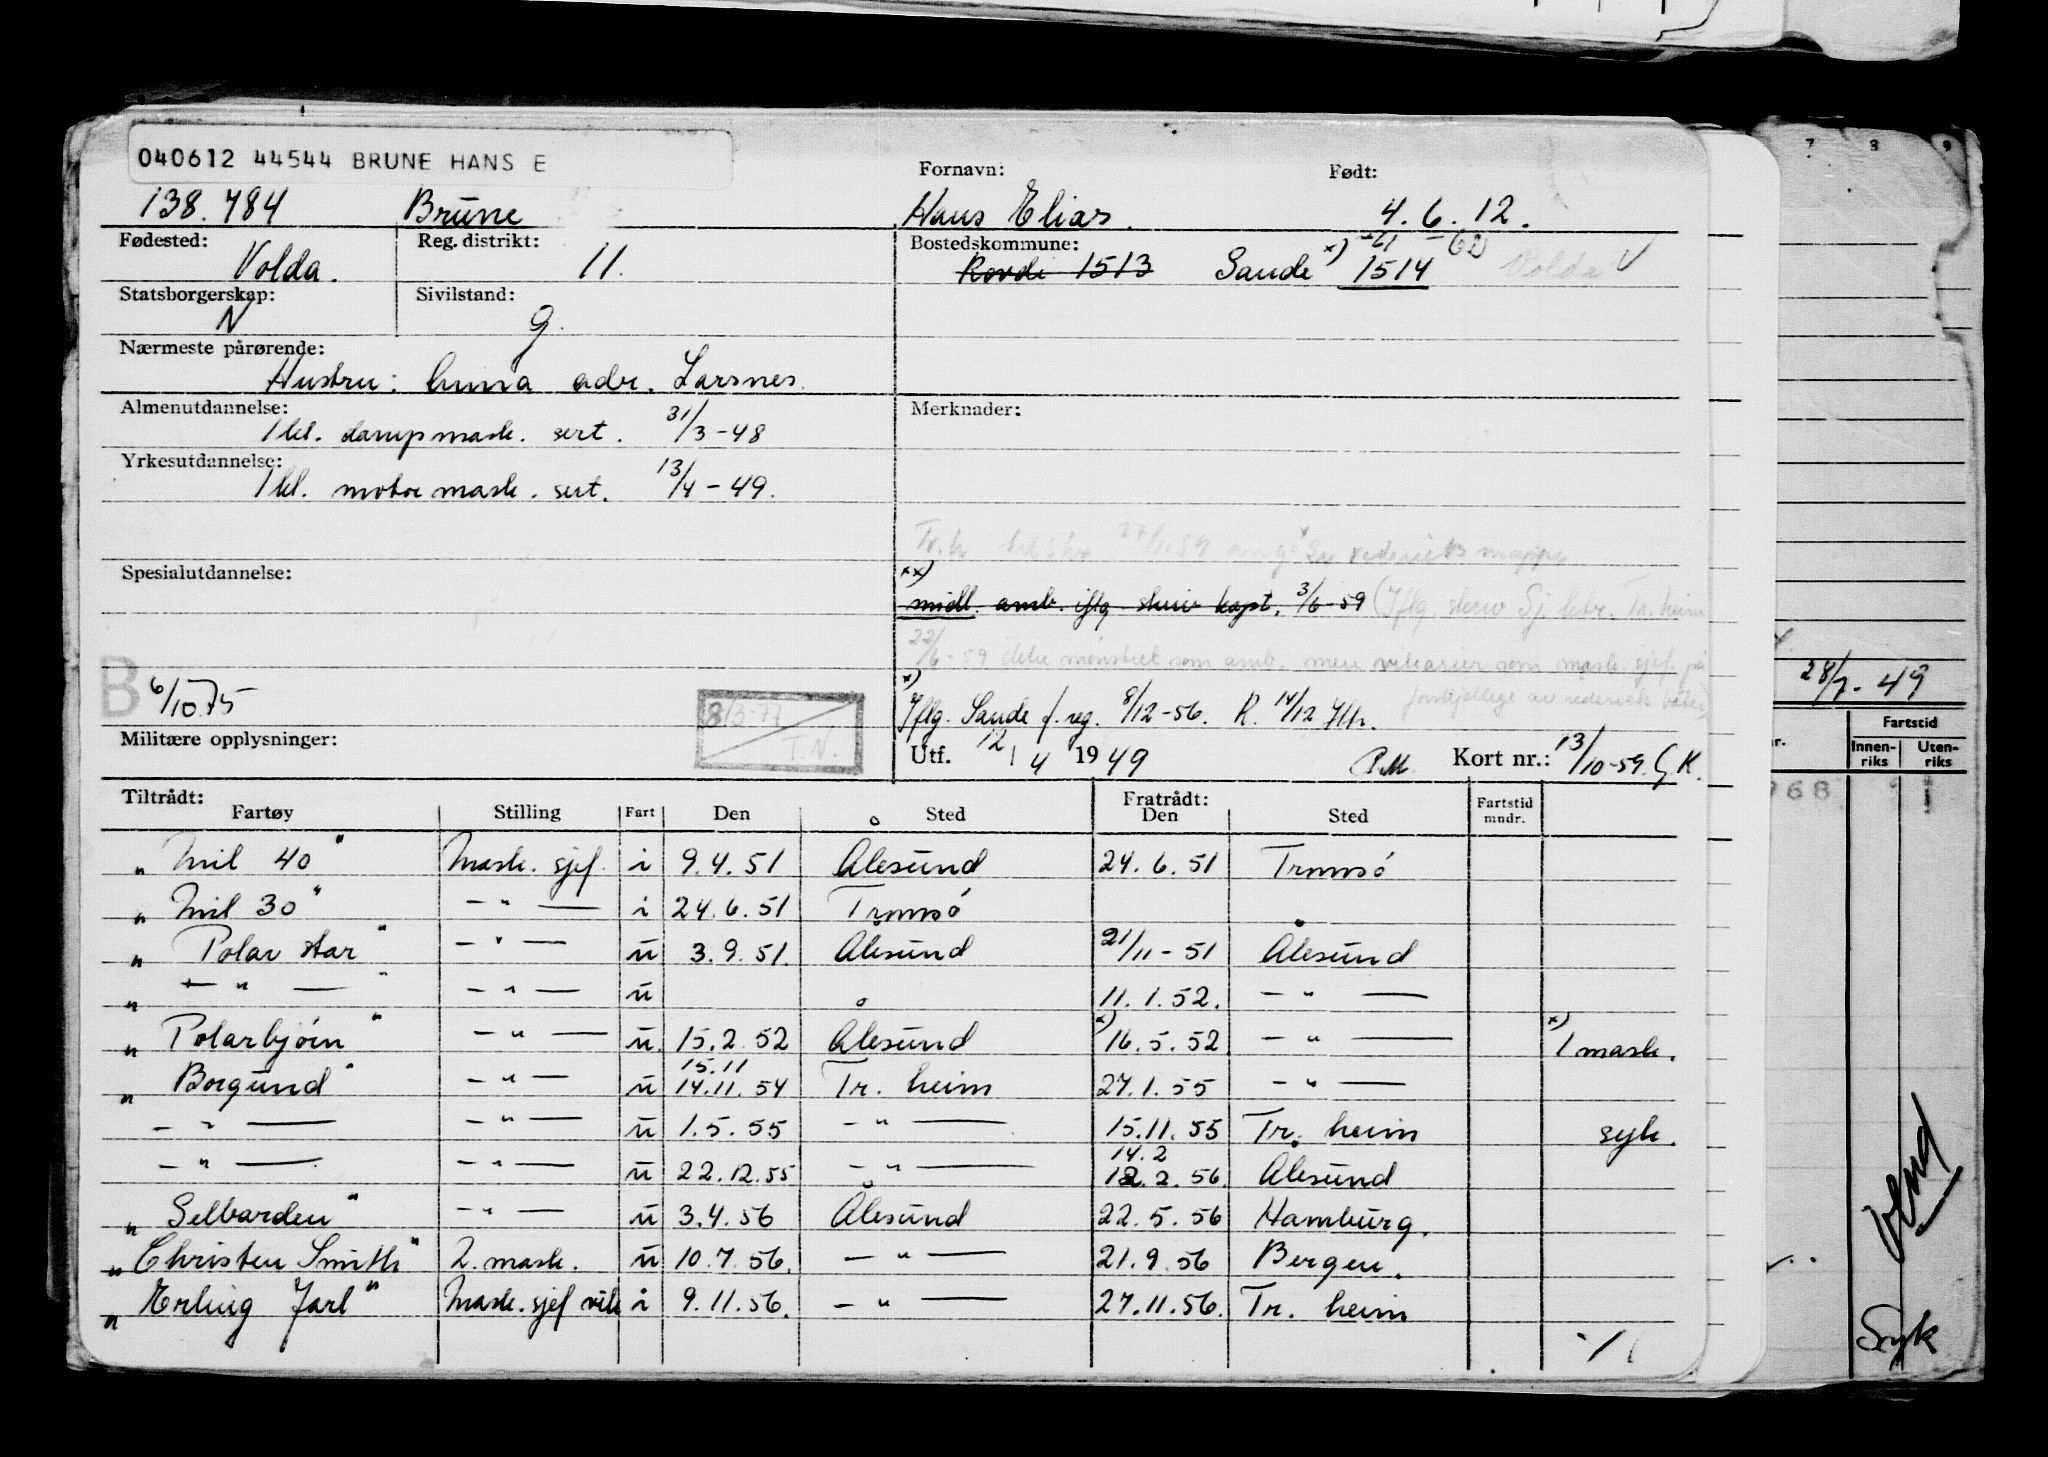 040612 44544 BRUNE HANS E
Fornavn: Født:
138.784 Brune Hans Elias. 4.6.12.
Fødested: Reg. distrikt: Bostedskommune:
Volda. 11. Rovde 1513 Sande x) 1514 Volda V
Statsborgerskap: Sivilstand:
N g.
Nærmeste pårørende:
Hustru: Anna adr. Larsnes.
Almenutdannelse: Merknader:
1 kl. damp mask. sert. 31/3-48
Yrkesutdannelse:
1 kl. motor mask. sert. 13/4-49.
27/6 59 ang. rederiets mappe
Spesialutdannelse: xx)
midl. amb. iflg. skriv kapt. 3/6-59 (Iflg. skriv Sj. ktr. Tr. heim
22/6-59 ikke mønstret som amb. men vikarier som mask. sjef. på
forskjellige av rederiets båter)
B 6/10 75 x)
8/3-77 Iflg. Sande f. reg. 8/12-56. R. 14/12
T.N.
Militære opplysninger: Utf. 12/4 1949 P.M. Kort nr.: 13/10-59. G.K.
Tiltrådt: Fratrådt:
Fartøy Stilling Fart Den Sted Den Sted Fartstid mndr.
„Mil 40" Mask. sjef. i 9.4.51 Ålesund 24.6.51 Tromsø
„Mil 30" — " — i 24.6.51 Tromsø
„Polar star" — " — u 3.9.51. Ålesund 21/11-51 Ålesund
„ — " — " — " — u 11.1.52. — " —
„Polarbjørn" — " — u. 15.2.52 Ålesund x) 16.5.52 — " — x) 1 mask.
15.11
„Borgund" — " — u 14.11.54 Tr. heim 27.1.55 — " —
— " — — " — u 1.5.55 — " — 15.11.55 Tr. heim syk.
14.2
— " — — " — u 22.12.55 — " — 12.2.56. Ålesund
„Selbarden" — " — u 3.4.56 Ålesund 22.5.56 Hamburg.
„Christen Smith" 2. mask. u 10.7.56. — " — 21.9.56 Bergen.
„Erling Jarl" Mask. sjef vik i 9.11.56. — " — 27.11.56. Tr. heim
7 8 9
28/7-49
Fartstid
Innen-riks Uten-riks
968
Syk